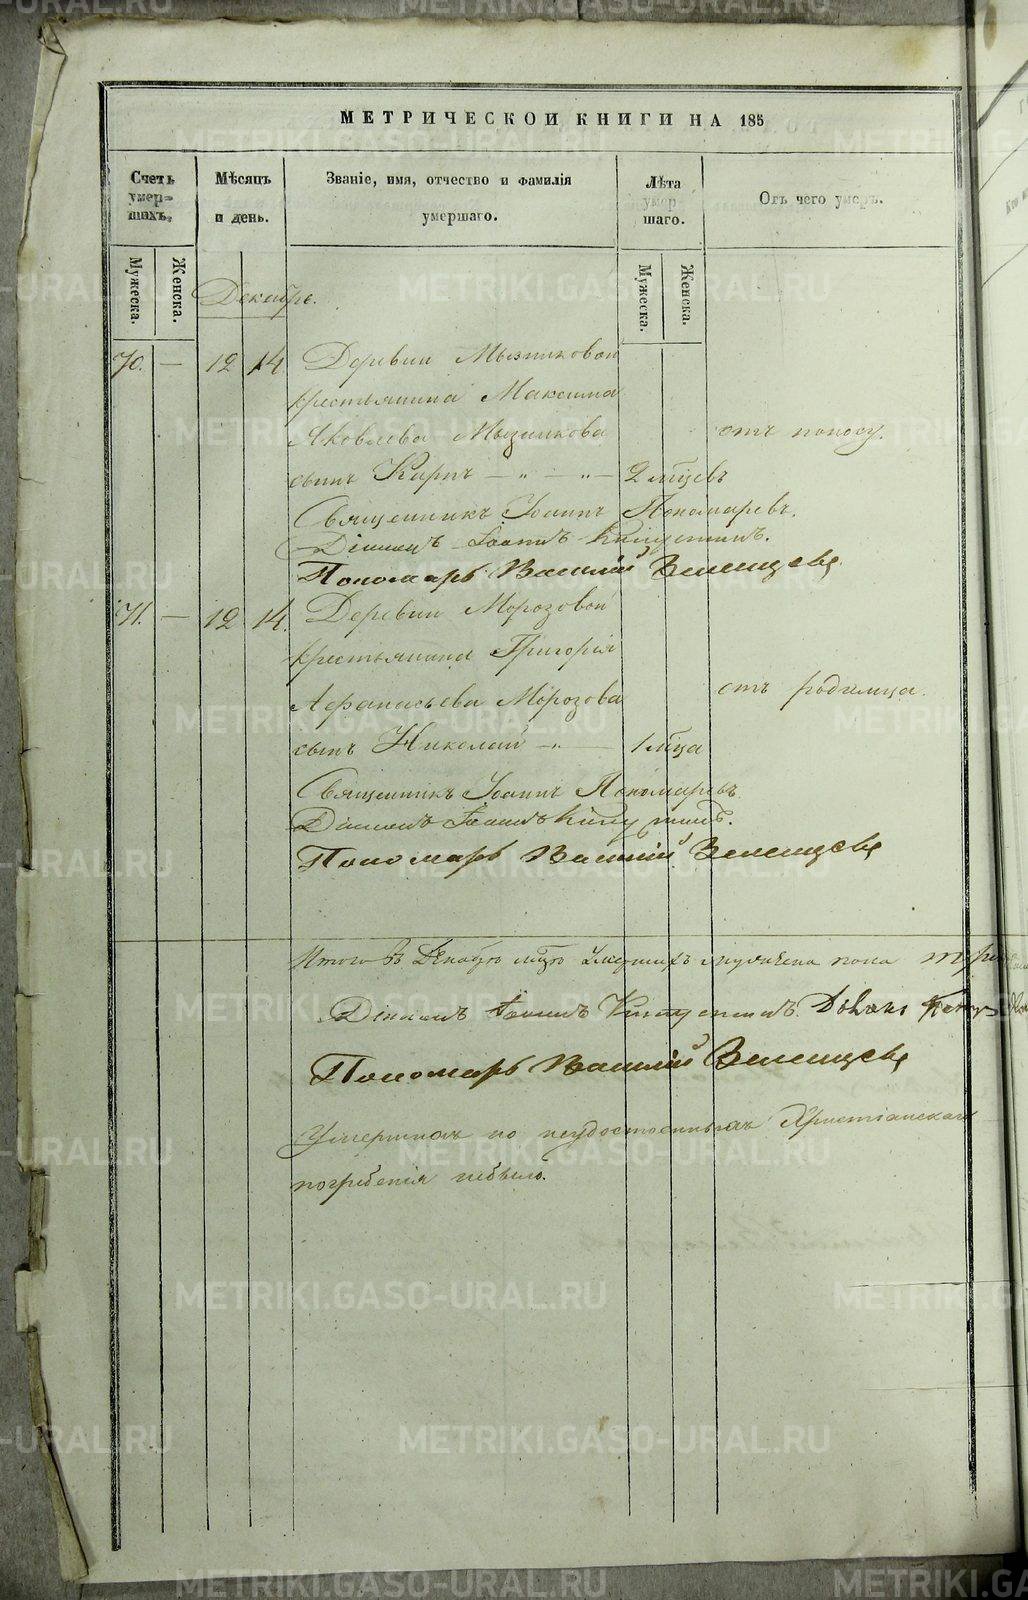 МЕТРИЧЕСКОЙ КНИГИ НА 185
Счетъ умер= шихъ.
Мѣсяцъ и день.
Званіе, имя, отчество и фамилія умершаго.
Лѣта умер шаго.
Отъ чего умеръ.
Мужеска.
Женска.
Мужеска.
Женска.
Декабрь.
70. — 12 14 Деревни Мызниковой
крестьянина Максима
Яковлева Мызникова
отъ поносу.
сынъ Карпъ — „ — „ — 2 мѣцевъ
Священникъ Іоаннъ Пономаревъ.
Діаконъ Іоаннъ
Пономарь Василій Зеленцовъ
71. — 12 14. Деревни Морозовой
крестьянина Григорія
Афанасьева Морозова
отъ родимца.
сынъ Николай — „ — 1 мѣца
Священникъ Іоаннъ Пономаревъ
Діаконъ Іоаннъ
Пономарь Василій Зеленцовъ
Итого въ Декабрѣ мцѣ умершихъ мужеска пола три
Діаконъ Іоаннъ
Пономарь Василій Зеленцовъ
Умершихъ но неудостоенныхъ Христіанскаго
погребенія небыло.
METRIKI.GASO-URAL.RU